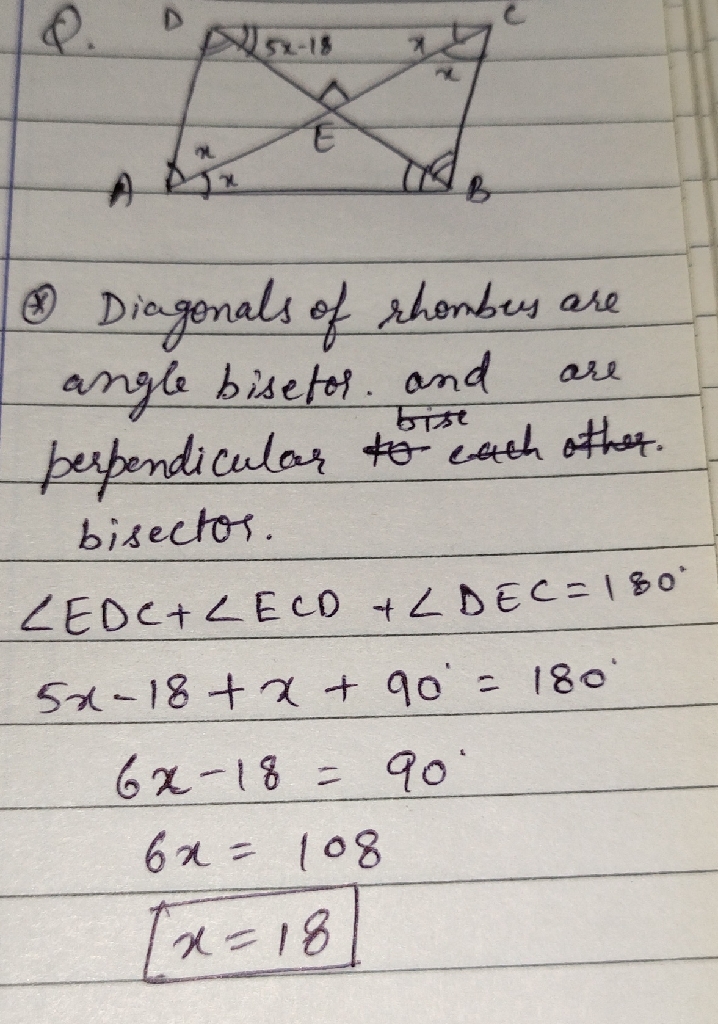 Q. D C
5x-18 x
x
E
x
A x B
⊛ Diagonals of rhombus are
angle bisetor. and are
bise
perpendicular to each other.
bisector.
∠EDC+∠ECD +∠DEC=180°
5x-18 + x + 90° = 180°
6x-18 = 90°
6x = 108
x=18